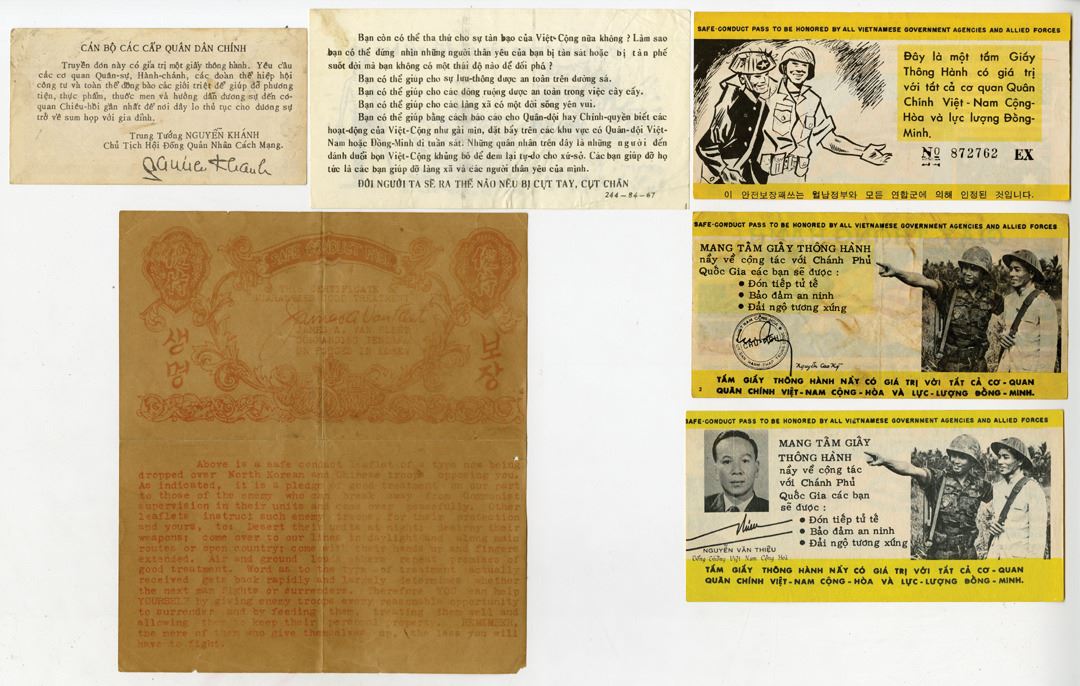 CÁN BỘ CÁC CẤP QUÂN DÂN CHÍNH
Truyền đơn này có giá trị một giấy thông hành. Yêu cầu
các cơ quan Quân-sự, Hành-chánh, các đoàn thể hiệp hội
công tư và toàn thể đồng bào các giới triệt để giúp đỡ phương
tiện, thực phẩm, thuốc men và hướng dẫn đương-sự đến cơ-
quan Chiêu-hồi gần nhất để nơi đây lo thủ tục cho đương sự
trở về sum họp với gia đình.
Trung Tướng NGUYỄN KHÁNH
Chủ Tịch Hội Đồng Quân Nhân Cách Mạng.
Bạn còn có thể tha thứ cho sự tàn bạo của Việt-Cộng nữa không ? Làm sao
bạn có thể đứng nhìn những người thân yêu của bạn bị tàn sát hoặc bị tàn phế
suốt đời mà bạn không có một thái độ nào để đối phó ?
Bạn có thể giúp cho sự lưu-thông được an toàn trên đường sá.
Bạn có thể giúp cho các đồng ruộng được an toàn trong việc cày cấy.
Bạn có thể giúp cho các làng xã có một đời sống yên vui.
Bạn có thể giúp bằng cách báo cáo cho Quân-đội hay Chính-quyền biết các
hoạt-động của Việt-Cộng như gài mìn, đặt bẫy trên các khu vực có Quân-đội Việt-
Nam hoặc Đồng-Minh đi tuần sát. Những quân nhân trên đây là những người đến
đánh đuổi bọn Việt-Cộng khủng bố để đem lại tự-do cho xứ-sở. Các bạn giúp đỡ họ
tức là các bạn giúp đỡ làng xã và các người thân yêu của mình.
ĐỜI NGƯỜI TA SẼ RA THẾ NÀO NẾU BỊ CỤT TAY, CỤT CHÂN
244-84-67
SAFE-CONDUCT PASS TO BE HONORED BY ALL VIETNAMESE GOVERNMENT AGENCIES AND ALLIED FORCES
Đây là một tấm Giấy
Thông Hành có giá trị
với tất cả cơ quan Quân
Chính Việt-Nam Cộng-
Hòa và lực lượng Đồng-
Minh.
No 872762 EX
이 안전보장패쓰는 월남정부와 모든 연합군에 의해 인정된 것입니다.
SAFE-CONDUCT PASS TO BE HONORED BY ALL VIETNAMESE GOVERNMENT AGENCIES AND ALLIED FORCES
MANG TẤM GIẤY THÔNG HÀNH
nầy về cộng tác với Chánh Phủ
Quốc Gia các bạn sẽ được :
• Đón tiếp tử tế
• Bảo đảm an ninh
• Đãi ngộ tương xứng
Nguyễn Cao Kỳ
2
TẤM GIẤY THÔNG HÀNH NẦY CÓ GIÁ TRỊ VỚI TẤT CẢ CƠ-QUAN
QUÂN CHÍNH VIỆT-NAM CỘNG-HÒA VÀ LỰC-LƯỢNG ĐỒNG-MINH.
SAFE-CONDUCT PASS TO BE HONORED BY ALL VIETNAMESE GOVERNMENT AGENCIES AND ALLIED FORCES
MANG TẤM GIẤY
THÔNG HÀNH
nầy về cộng tác
với Chánh Phủ
Quốc Gia các bạn
sẽ được :
• Đón tiếp tử tế
• Bảo đảm an ninh
• Đãi ngộ tương xứng
NGUYỄN VĂN THIỆU
Tổng Thống Việt Nam Cộng Hoà
TẤM GIẤY THÔNG HÀNH NẦY CÓ GIÁ TRỊ VỚI TẤT CẢ CƠ-QUAN
QUÂN CHÍNH VIỆT-NAM CỘNG-HÒA VÀ LỰC-LƯỢNG ĐỒNG-MINH.
SAFE CONDUCT
CERTIFICATE
GUARANTEES GOOD TREATMENT
JAMES A. VAN FLEET
COMMANDING GENERAL
UN FORCES IN KOREA
생명
보장
Above is a safe conduct leaflet of a type now being
dropped over North Korean and Chinese troops opposing you.
As indicated, it is a pledge of good treatment on our part
to those of the enemy who can break away from Communist
supervision in their units and come over peacefully. Other
leaflets instruct such enemy troops, for their protection
and yours, to: Desert their units at night; bury their
weapons; come over to our lines in daylight and along main
routes or open country; come with their hands up and fingers
extended. Air and ground loudspeakers
good treatment. Word as to the kind of treatment actually
received gets back rapidly and largely determines whether
the next man fights or surrenders. Therefore YOU can help
YOURSELF by giving enemy troops every reasonable opportunity
to surrender and by feeding them, treating them well and
allowing them to keep their personal property. REMEMBER,
the more of them who give themselves up, the less you will
have to fight.